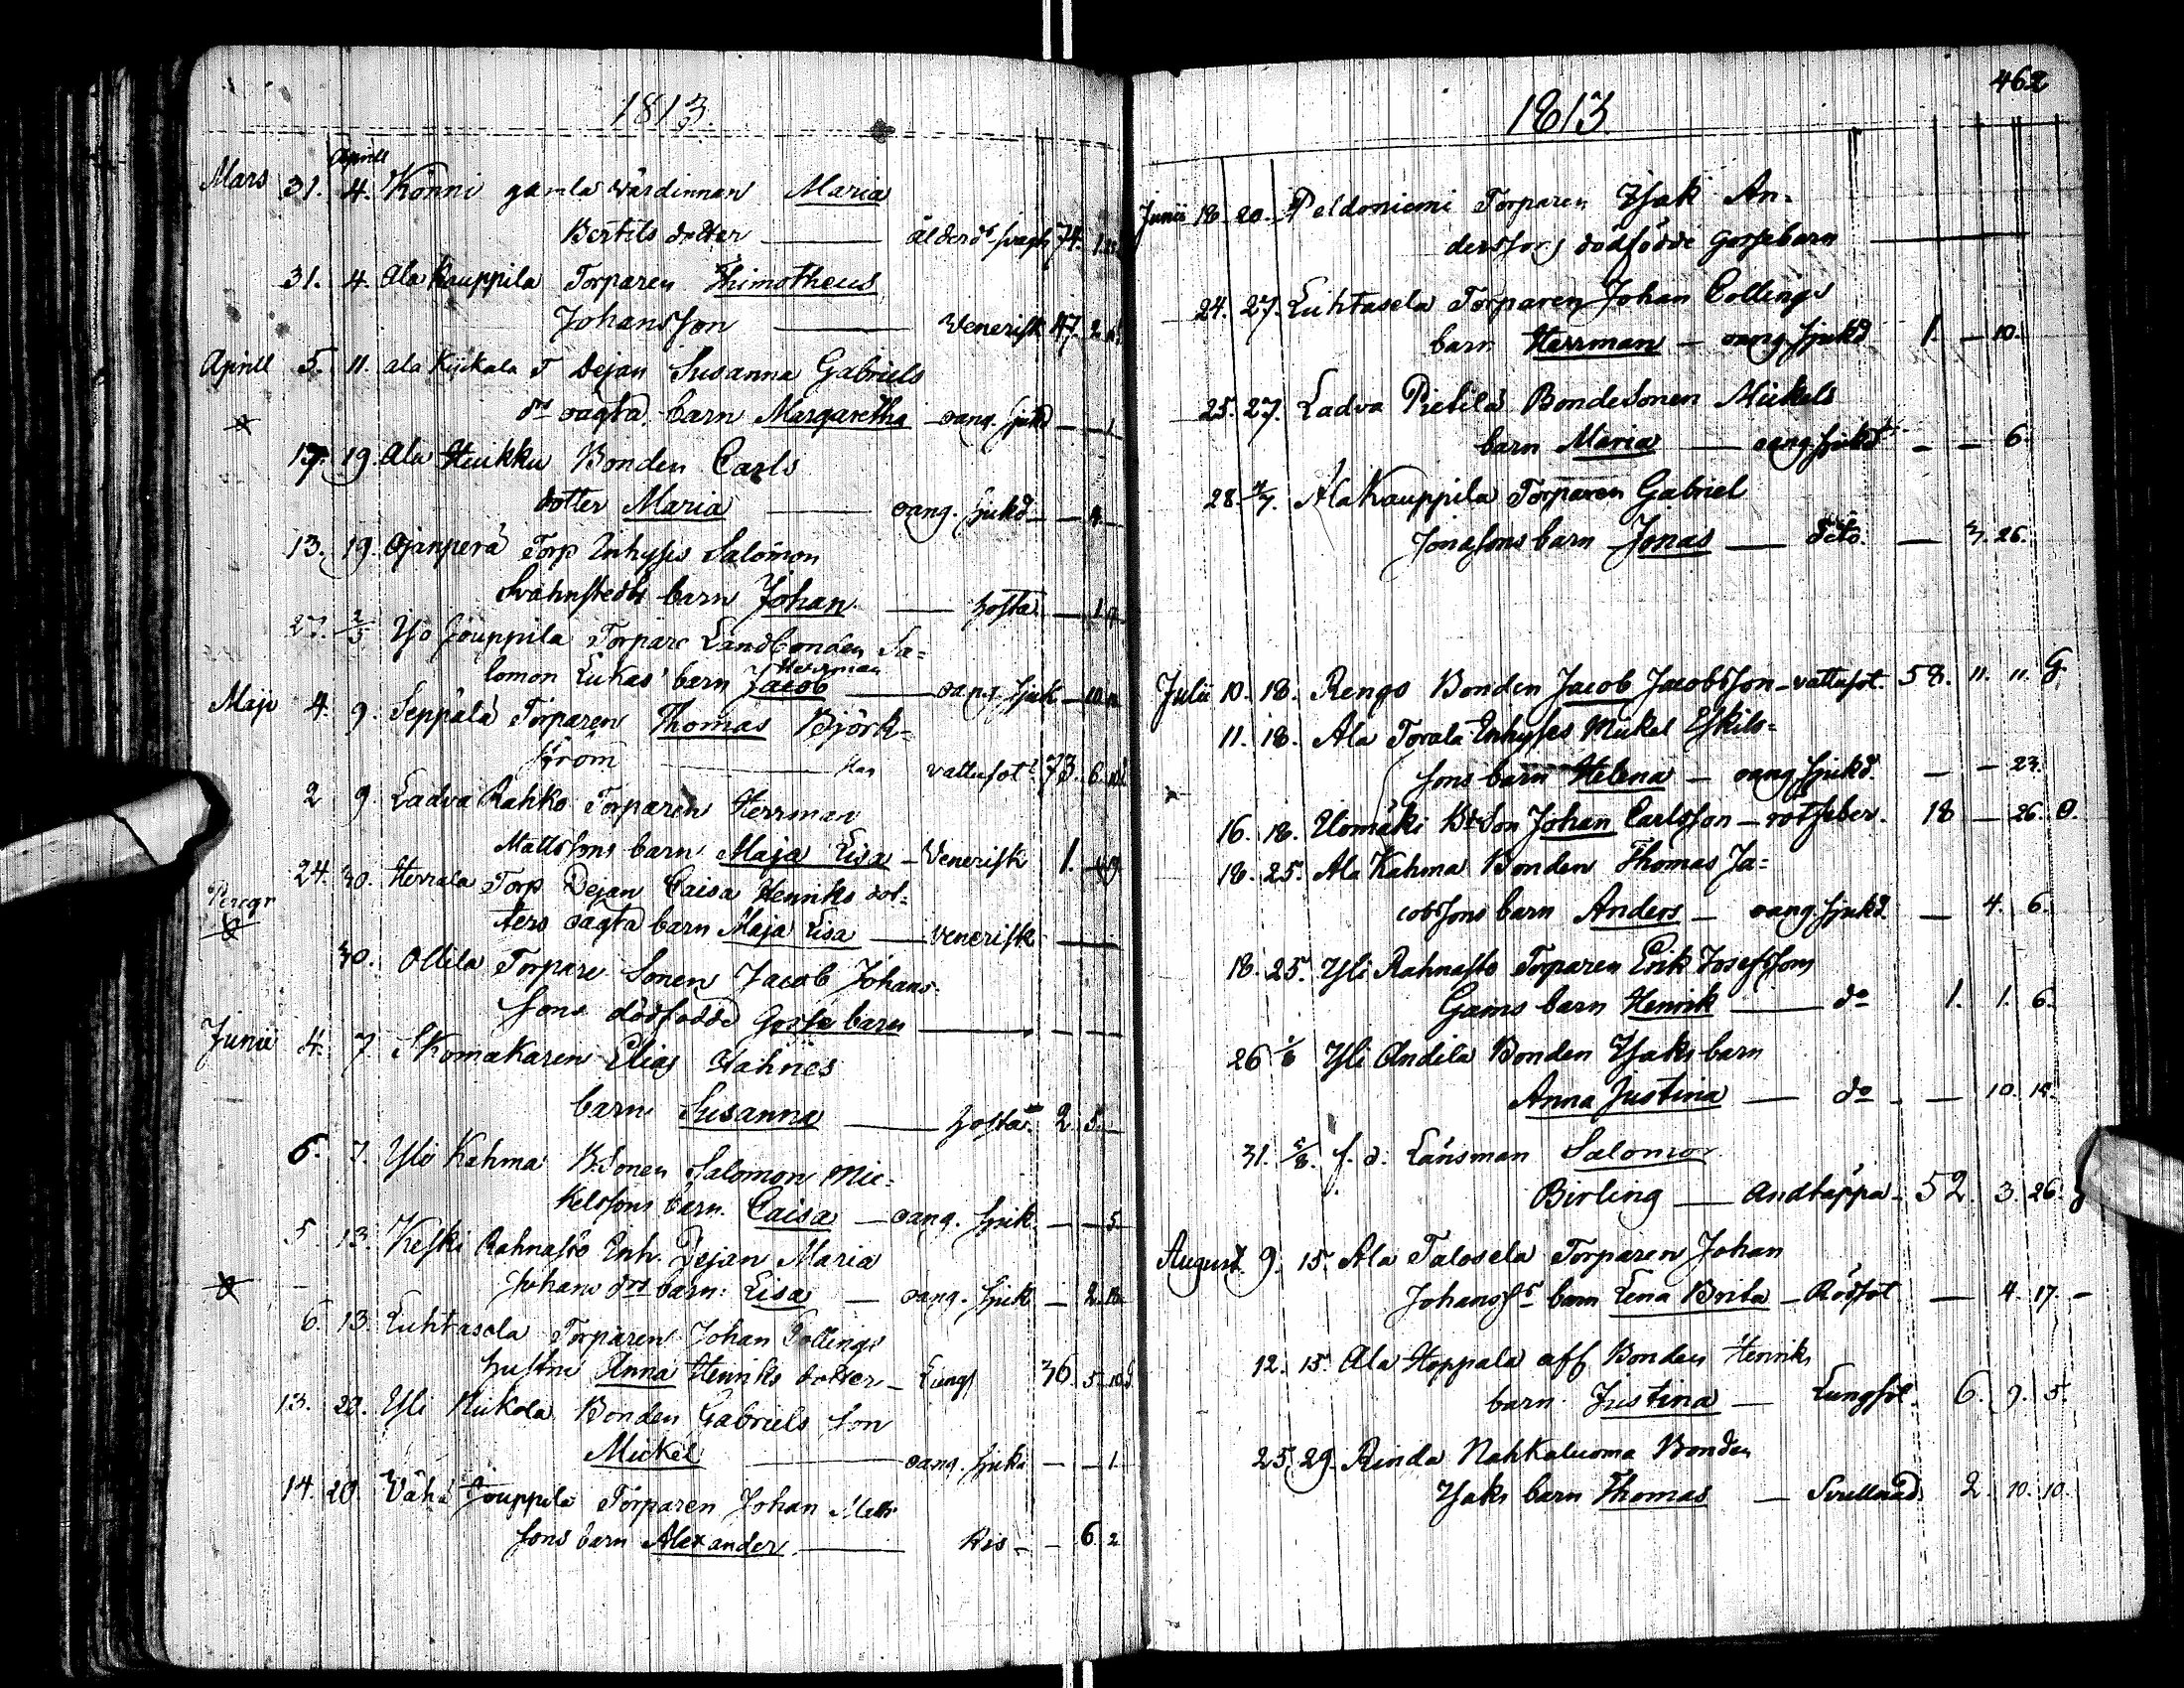 1813
Aprill
Mars 31. 4. Könni gamla wärdinnan Maria
Bertils dotter — ålderds. svagh 74. 1.
31. 4. Ala Kauppila Torparen Thimotheus
Johansson — Venerisk 47. 2.
Aprill 5. 11. ala Kijkala T Dejan Susanna Gabriels
drs oägta barn Margaretha — oang. sjukd — — 1.
17. 19. Ala Heikku Bonden Carls
dotter Maria — oang. sjukd — — 4.
13. 19. Ojanperä Torp Inhyses Salomon
Svahnstedts barn Johan — hosta — 1.
27. 2/5 Yso Jouppila Torpare Landbonden Sa=
Herrman
lomon Lukas' barn Jacob — oang. sjuk — 10.
Maji 4. 9. Seppälä Torparen Thomas Björk=
ström — vattusot 73. 6.
2 9. Ladva Rahko Torparen Herrman
Mattssons barn Maja Lisa — Venerisk 1. —
24. 30. Herrala Torp Dejan Caisa Henriks dot=
Peregr
ters oägta barn Maja Lisa — venerisk — —
30. Ollila Torpare Sonen Jacob Johans=
sons dödfödde Gosse barn — — —
Junii 4. 7. Skomakaren Elias Hahnes
barn Susanna — hosta 2. 5. —
6. 7. Yli Kahma B.Sonen Salomon Mic=
kelssons barn Caisa — oang. sjuk — — 5.
5. 13. Keski Rahnasto Inh. Dejan Maria
Johans drs barn Lisa — oang. sjuk — 2. 13.
6. 13. Luhtasela Torparen Johan Collings
hustru Anna Henriks dotter — Lungs 36. 5. 10.
13. 20. Yli Nukola Bonden Gabriels son
Mickel — oang. sjukd — — 1.
14. 20. Vähä Jouppila Torparen Johan Matts
sons barn Alexander — — 6. 2
462
1813
Junii 18. 20. Peldoniemi Torparen Ysak An=
derssons dödfödde gossebarn —
24. 27. Luhtasela Torparen Johan Collings
barn Herrman — oang. sjukd 1. — 10.
25. 27. Ladva Pietilä Bondesonen Mickels
barn Maria — oang. sjukd — — 6.
28. 4/7. Ala Kauppila Torparen Gabriel
Jonassons barn Jonas — dito. — 3. 26.
Julii 10. 18. Rengo Bonden Jacob Jacobsson — vattusot. 58. 11. 11. G.
11. 18. Ala Torala Inhyses Mickel Eskils=
sons barn Helena — oang. sjukd — — 23.
16. 18. Uomäki BdSon Johan Carlsson — rötfeber. 18 — 26. O.
18. 25. Ala Kahma Bonden Thomas Ja=
cobssons barn Anders — oang. sjukd. — 4. 6.
18. 25. Yli Rahnasto Torparen Erik Josefssons
Gams barn Henrik — do 1. 1. 6.
26 1/8 Yli Andila Bonden Ysaks barn
Anna Justina — do — — 10. 18.
31. 5/8. f. d. Länsman Salomon
Birling — Andtäppa — 52. 3. 26. g
August. 9. 15. Ala Talosela Torparen Johan
Johanss s barn Lena Brita — Rödsot — 4. 17. —
12. 15. Ala Hoppala aff. Bonden Henriks
barn Justina — Lungsot. 6. 9. 5.
25. 29. Rinda Nahkaluoma Bonden
Ysaks barn Thomas — Svullnad 2. 10. 10.